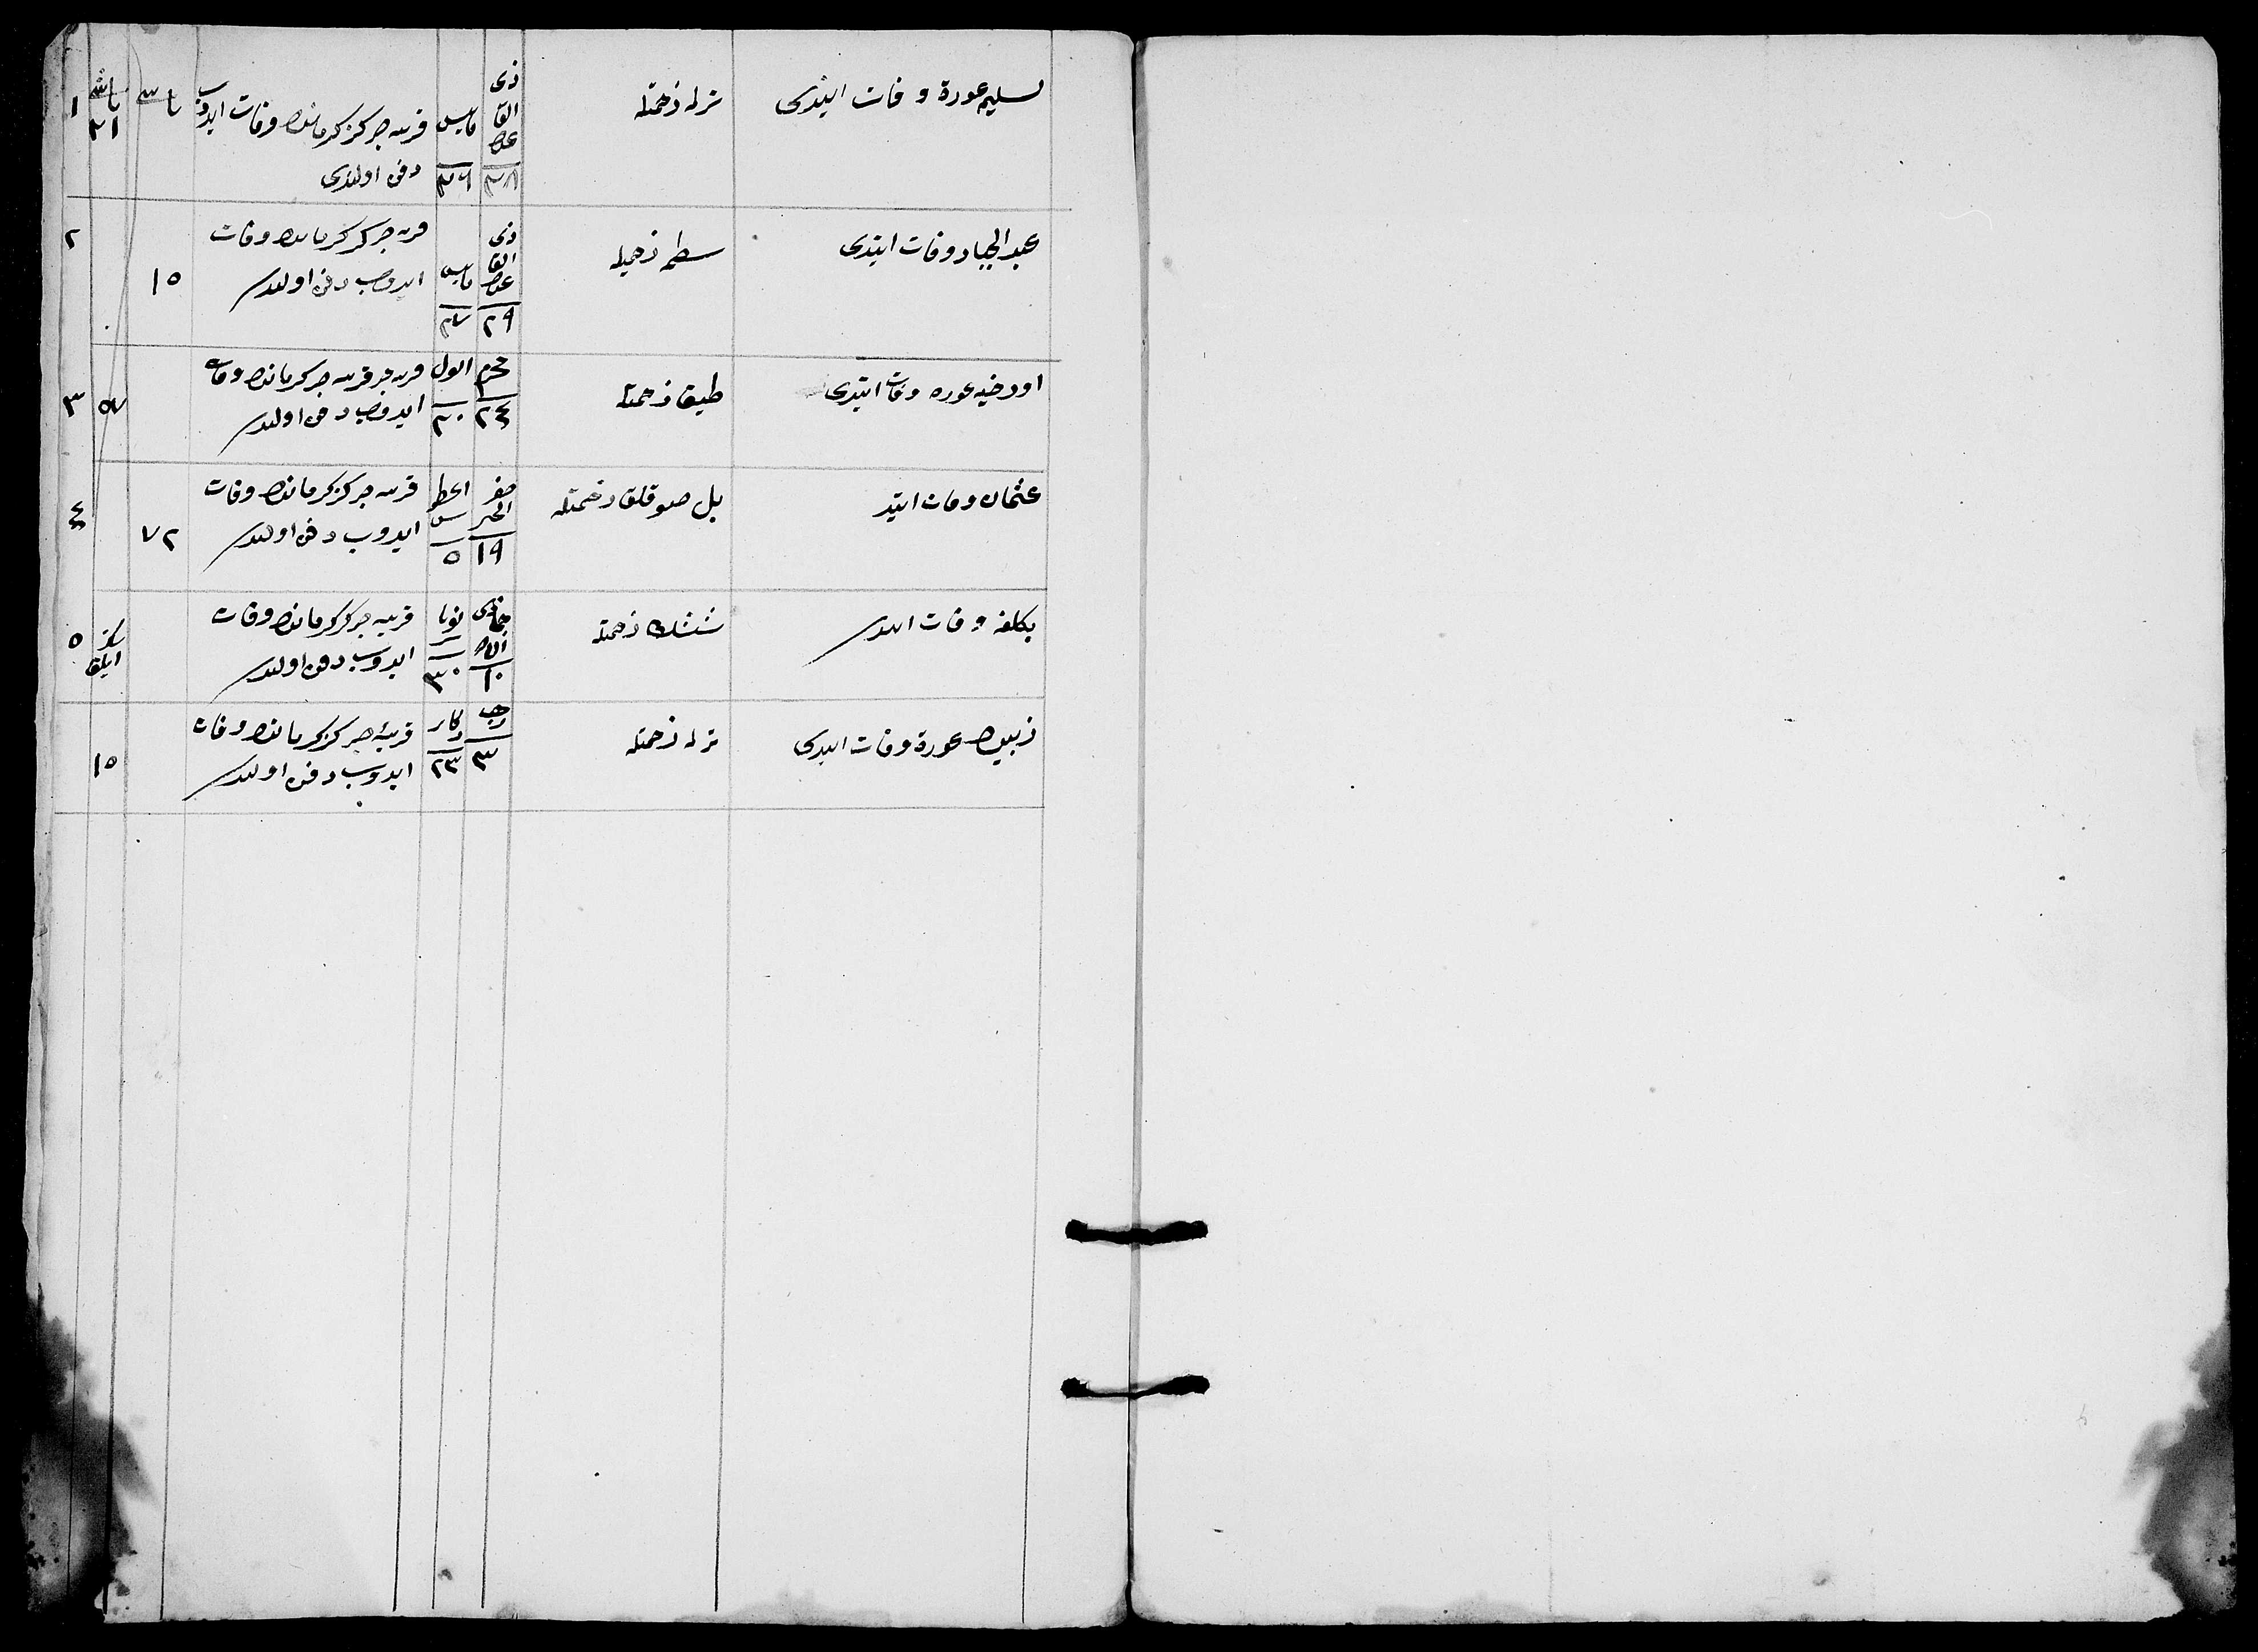 سليم عورة وفات ايتدى
نزله زحمتله
ذى القا عده ٢٨
مايس ٢٦
قريه چركز كرمانده وفات ايدوب
دفن اولندى
ياش
ياش ٢١
١
عبد الجبار وفات ايتدى
زحميله
ذى القا عده ٢٩
مايس ٢٧
قريه چركز كرمانده وفات
ايدوب دفن اولندى
١٥
٢
عوره وفات ايتدى
زحمتله
محرم ٢٤
ايول ٢٠
قريه چركز كرمانده وفات
ايدوب دفن اولندى
٥٧
٣
عثمان وفات ايتدى
بل صوقلق زحمتله
صفر الخير ١٩
اغطوس ٥
قريه چركز كرمانده وفات
ايدوب دفن اولندى
٧٢
٤
وفات ايتدى
زحمتله
جماذى ١٠
نويا ٣٠
قريه چركز كرمانده وفات
ايدوب دفن اولندى
سكز ايلق
٥
زبيده عورة وفات ايتدى
نزله زحمتله
رجب ٣
دكابر ٢٣
قريۀ چركز كرمانده وفات
ايدوب دفن اولندى
١٥